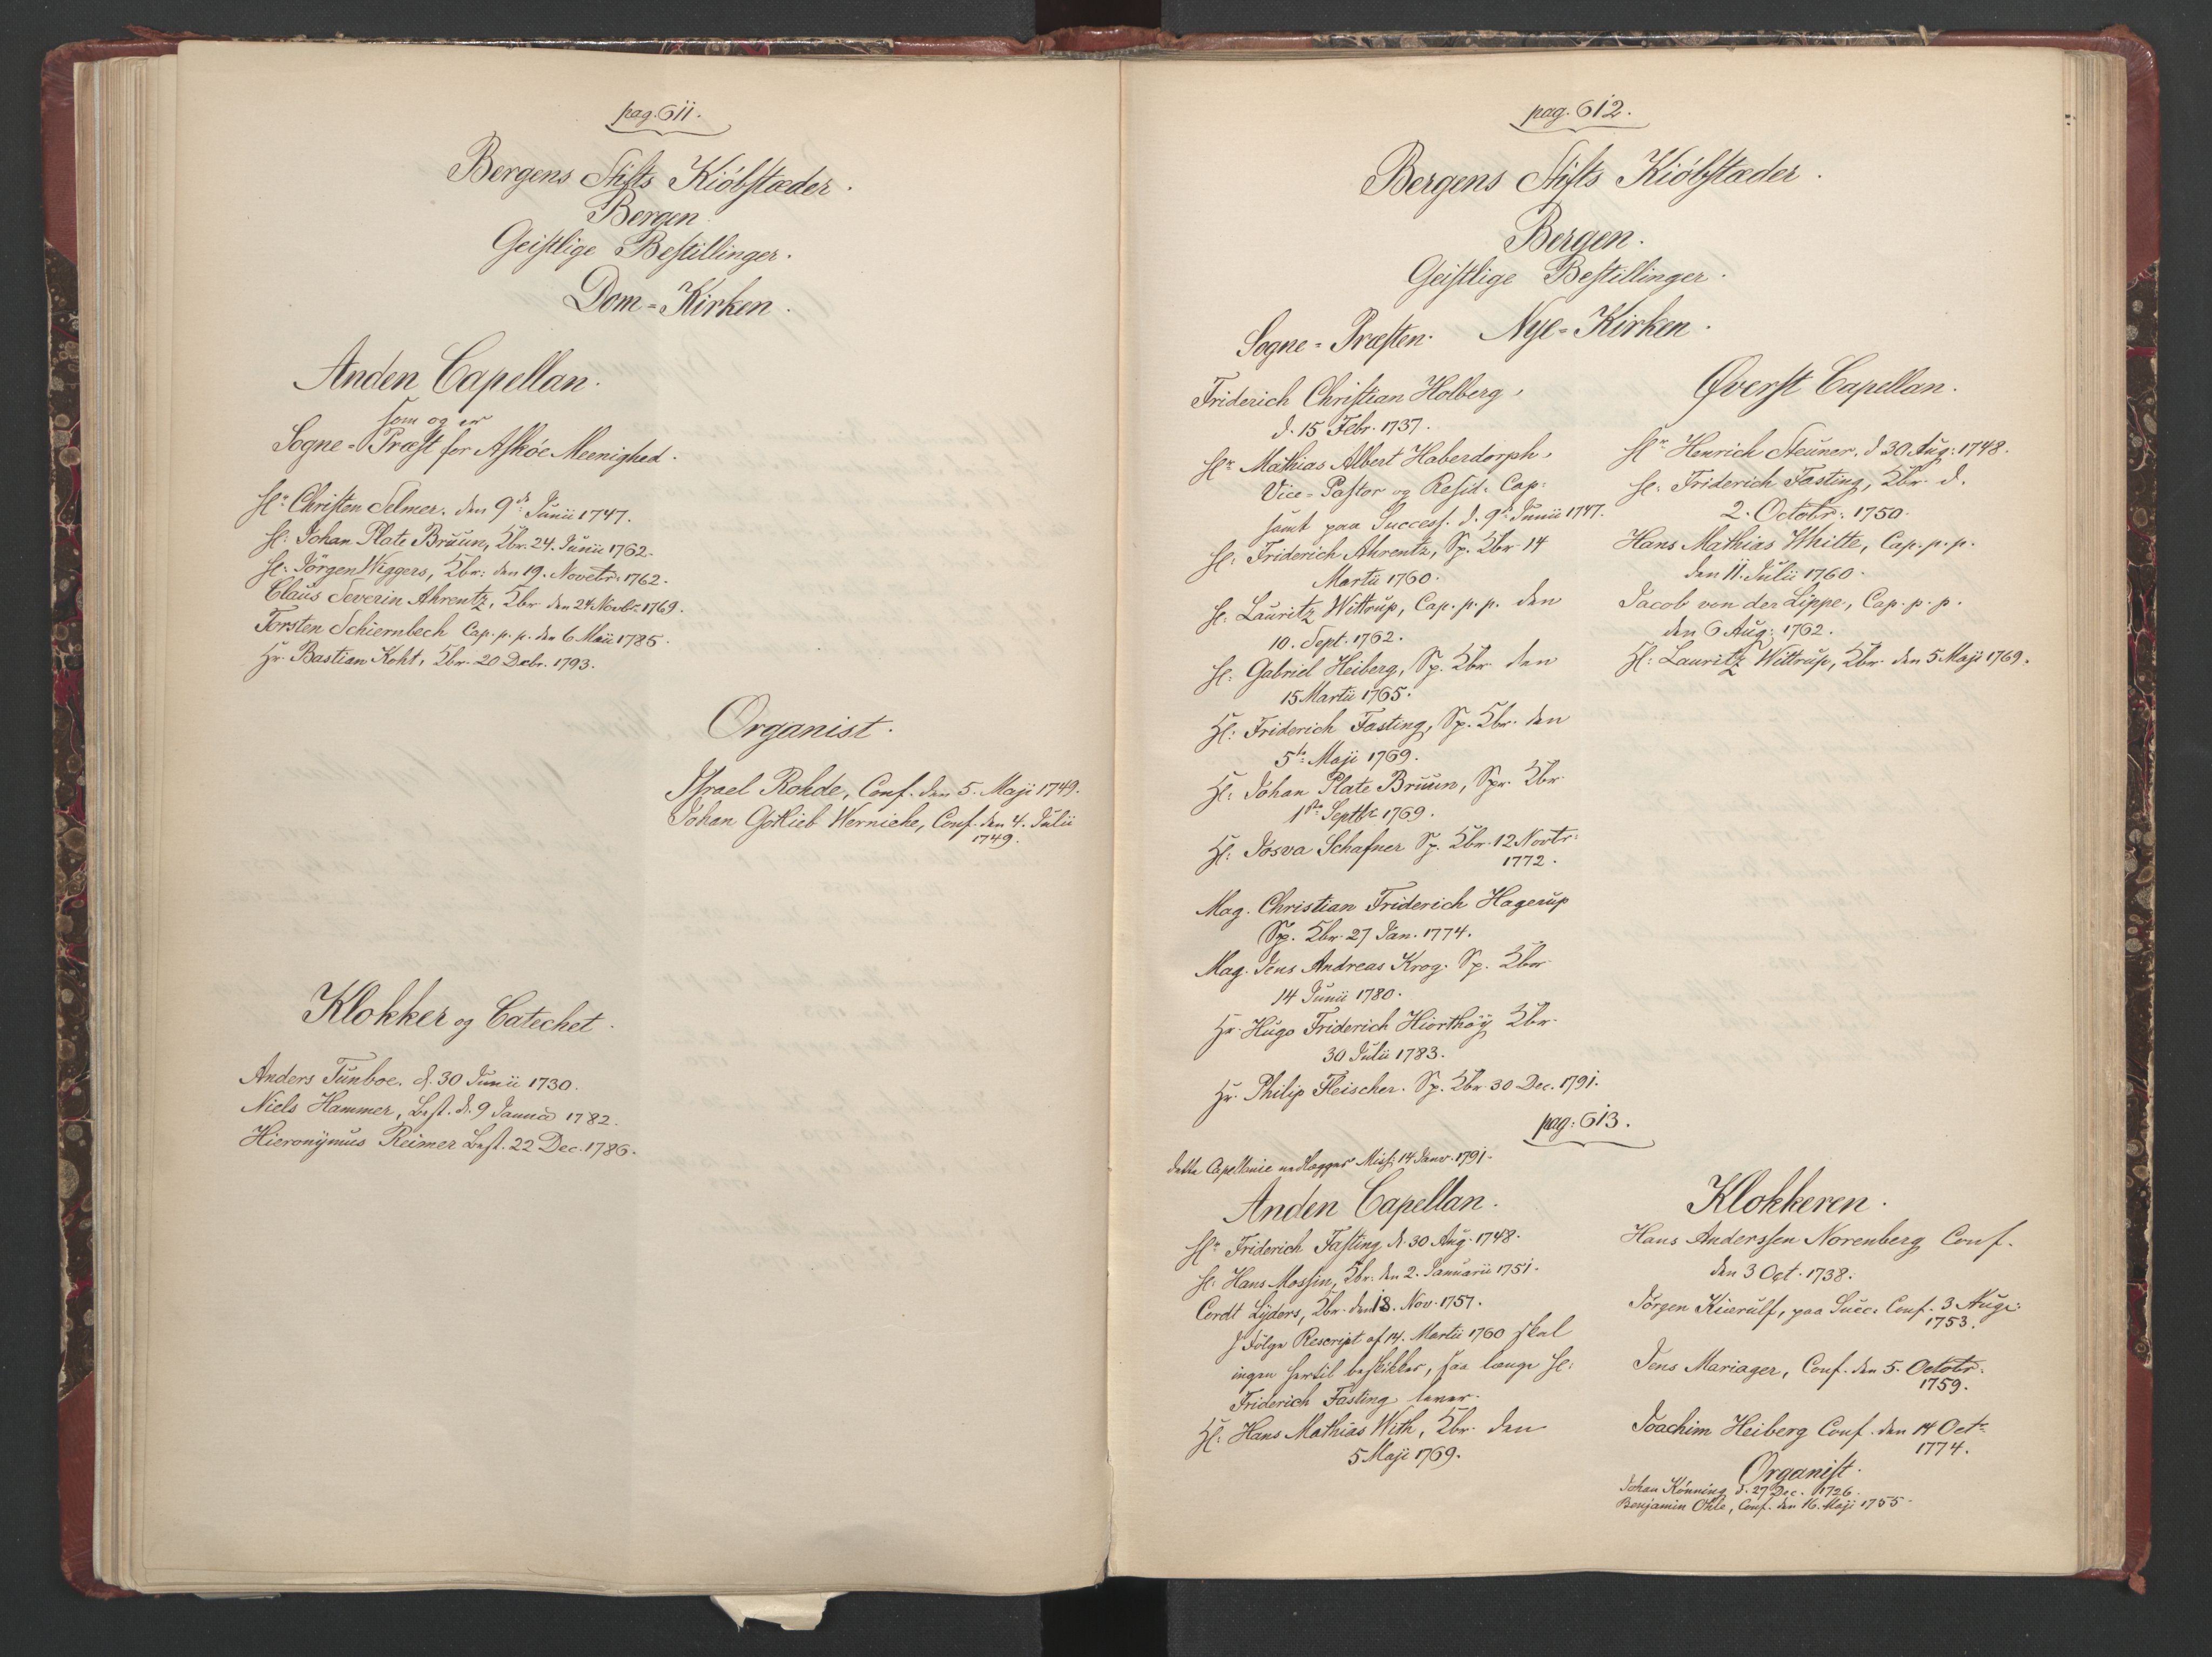 pag. 611.
Bergens Stifts Kiöbstæder.
Bergen
Geistlige Bestillinger.
Dom=Kirken.
Anden Capellan.
som og er
Sogne=Præst for Askøe Meenighed.
Hr. Christen Selmer. den 9de Junii 1747.
Hr: Johan Plate Bruun, Kbr. 24. Junii 1762.
Hr: Jörgen Wiggers, Kbr: den 19. Novebr: 1762.
Claus Severin Ahrentz, Kbr. den 24 Novbr. 1769.
Torsten Schiernbech Cap. p. p. den 6 Maii 1785.
Hr. Bastian Koht, Kbr. 20 Decbr. 1793.
Organist.
Israel Rohde, Conf. den 5. Maji 1749.
Johan Gotlieb Wernicke, Conf. den 4. Julii
1749.
Klokker og Catechet.
Anders Tunboe. d. 30 Junii 1730.
Niels Hammer, Best. d. 9 Janua 1782.
Hieronÿmus Reimer Best. 22 Dec. 1786.
pag. 612.
Bergens Stifts Kiöbstæder.
Bergen.
Geistlige Bestillinger.
Nye=Kirken.
Sogne=Præsten.
Friderich Christian Holberg,
d. 15 Febr. 1737.
Hr. Mathias Albert Haberdorph,
Vice=Pastor og Resid: Cap:
samt paa Success. d. 9de Junii 1747.
Hr: Friderich Ahrentz, Sp. Kbr 14
Martii 1760.
Hr: Lauritz Wittrup, Cap. p. p. den
10. Sept. 1762.
Hr: Gabriel Heiberg, Sp. Kbr. den
15 Martii 1765.
Hr: Friderich Fasting, Sp. Kbr. den
5te Maji 1769.
Hr: Johan Plate Bruun, Spr. Kbr.
1ste Septbr 1769.
Hr: Josva Schafner Sp. Kbr. 12 Novbr:
1772.
Mag. Christian Friderich Hagerup
Sp. Kbr. 27 Jan. 1774.
Mag. Jens Andreas Krog. Sp. Kbr.
14 Junii 1780.
Hr. Hugo Friderich Hiorthöÿ Kbr.
30 Julii 1783.
Hr. Philip Fleischer. Sp. Kbr. 30 Dec. 1791.
Øverst Capellan.
Hr Henrich Steuner. d 30 Aug: 1748.
Hr: Friderich Fasting, Kbr. d.
2. Octobr: 1750.
Hans Mathias Whitte, Cap. p. p.
den 11. Julii 1760.
Jacob von der Lippe, Cap. p. p.
den 6 Aug: 1762.
Hr: Lauritz Wittrup, Kbr. den 5 Maji 1769.
pag: 613.
dette Capellanie nedlægges Miss: 14 Janv. 1791.
Anden Capellan.
Hr. Friderich Fasting d. 30 Aug. 1748.
Hr: Hans Mossin, Kbr. den 2. Januarii 1751.
Cordt Lÿders, Kbr. den 18. Nov. 1757.
I Fölge Rescript af 14. Martii 1760 skal
ingen hertil beskikkes, saa længe Hr:
Friderich Fasting lever.
Hr: Hans Mathias With, Kbr. den
5 Maji 1769.
Klokkeren.
Hans Anderssen Norenberg Conf.
den 3 Oct. 1738.
Jörgen Kierulf, paa Succ: Conf. 3 Aug:
1753.
Jens Mariager, Conf. den 5. Octobr.
1759.
Joachim Heiberg Conf. den 14 Octr
1774.
Organist.
Johan Könning d. 27 Dec. 1726.
Benjamin Ohle, Conf. den 16. Maji 1755.